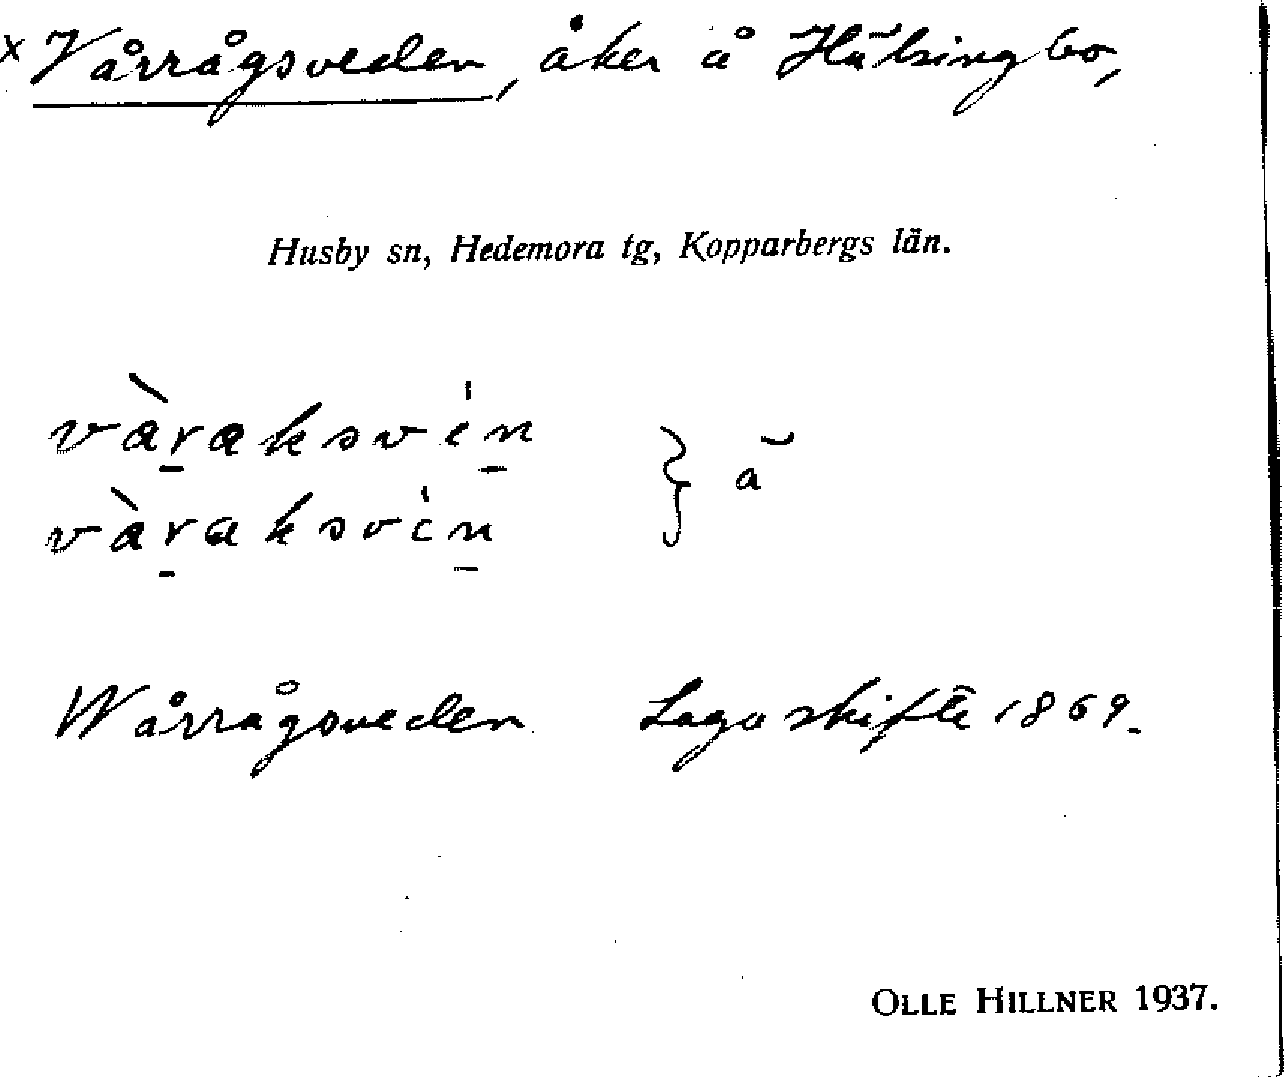 x Vårrågsveden, åker å Hälsingbo,
Husby sn, Hedemora tg, Kopparbergs län.
vàr̠aksvín̠
vàr̠aksvín̠ } ă
Wårrågsveden Laga skifte 1869.
OLLE HILLNER 1937.